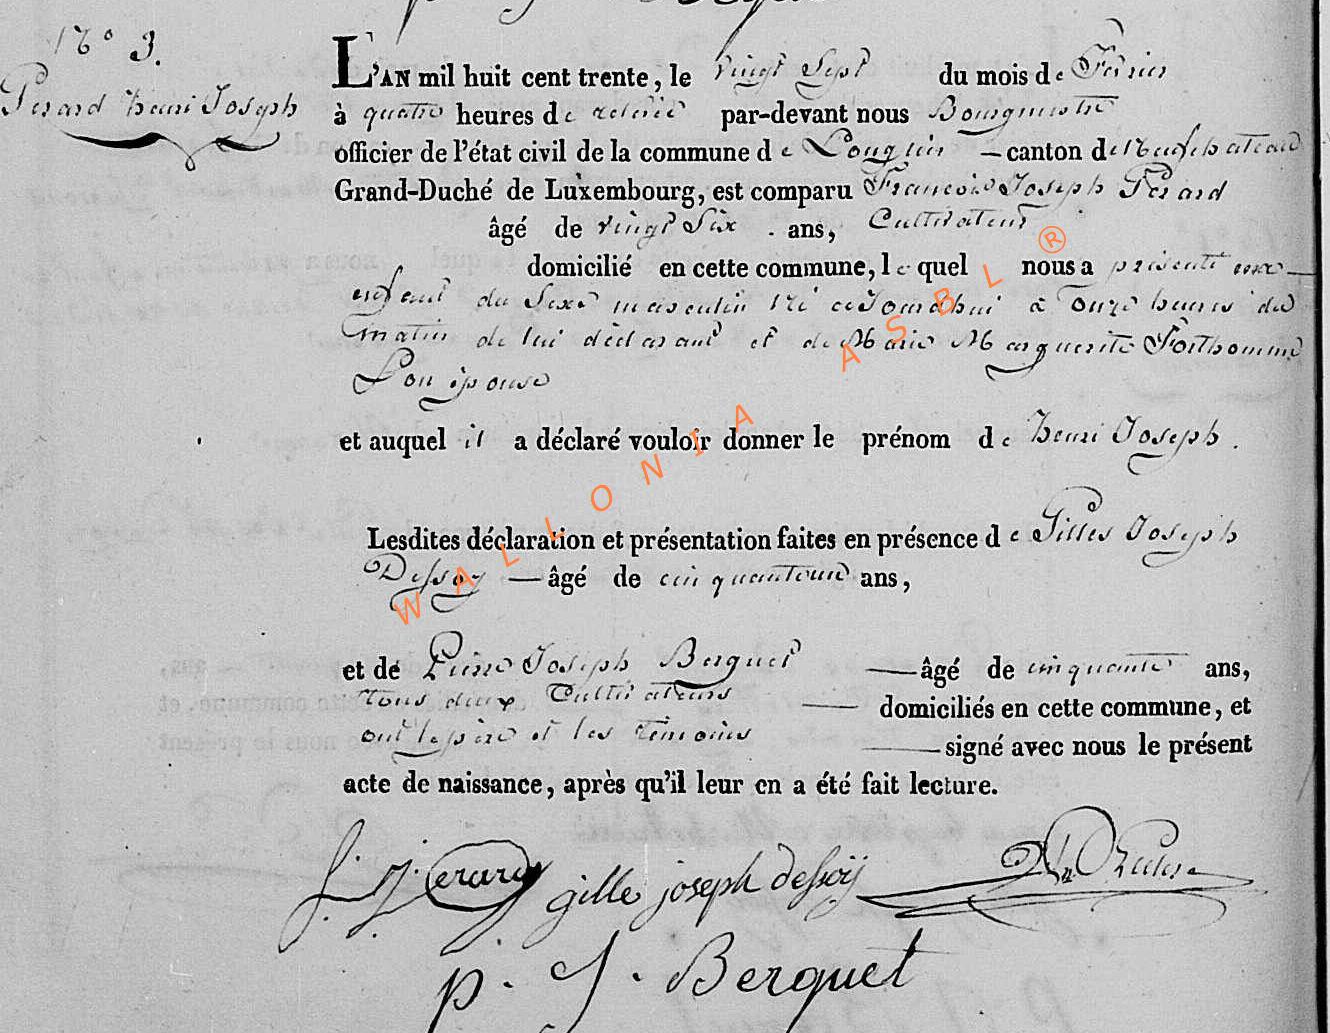 N° 3.
Gerard henri Joseph
L'AN mil huit cent trente, le vingt Sept du mois de Fevrier
à quatre heures de relevée par-devant nous Bourgmestre
officier de l'état civil de la commune de Longlier — canton de Neufchateau
Grand-Duché de Luxembourg, est comparu Francois Joseph Gerard
âgé de vingt Six . ans, Cultivateur
domicilié en cette commune, le quel nous a présenté un —
enfant du Sexe masculin né cejourdhui à onze heures du
matin de lui déclarant et de Marie Marguerite Forthomme
Son épouse
et auquel il a déclaré vouloir donner le prénom de henri Joseph .
Lesdites déclaration et présentation faites en présence de Gilles Joseph
Dessoy — âgé de cinquanteun ans,
et de Pierre Joseph Berguet — âgé de cinquante ans,
tous deux Cultivateurs — domiciliés en cette commune, et
ont le père et les temoins — signé avec nous le présent
acte de naissance, après qu'il leur en a été fait lecture.
f. J. Gerard gille joseph dessoÿ
p. J. Berquet
WALLONIA ASBL ®